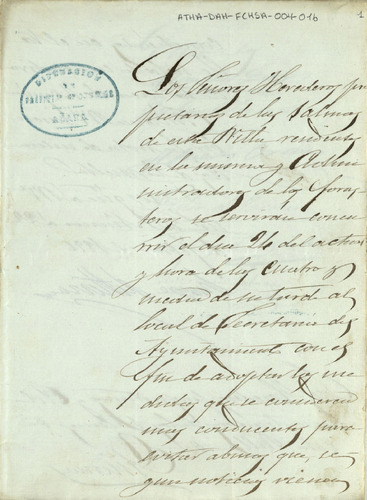 ATHA-DAH-FCHSA-004-016
1
Los Señores Herederos pro
pietarios de las Salinas
de esta Villa residentes
en la misma y Admi
nistradores de los foras
teros se serviran concu
rrir el dia 26 del actual
y hora de las cuatro y
media de su tarde al
local de Secretaria de
Ayuntamiento con el
fin de adoptar las me
didas que se consideren
mas conducentes para
evitar abusos que, se
gun noticias vienen